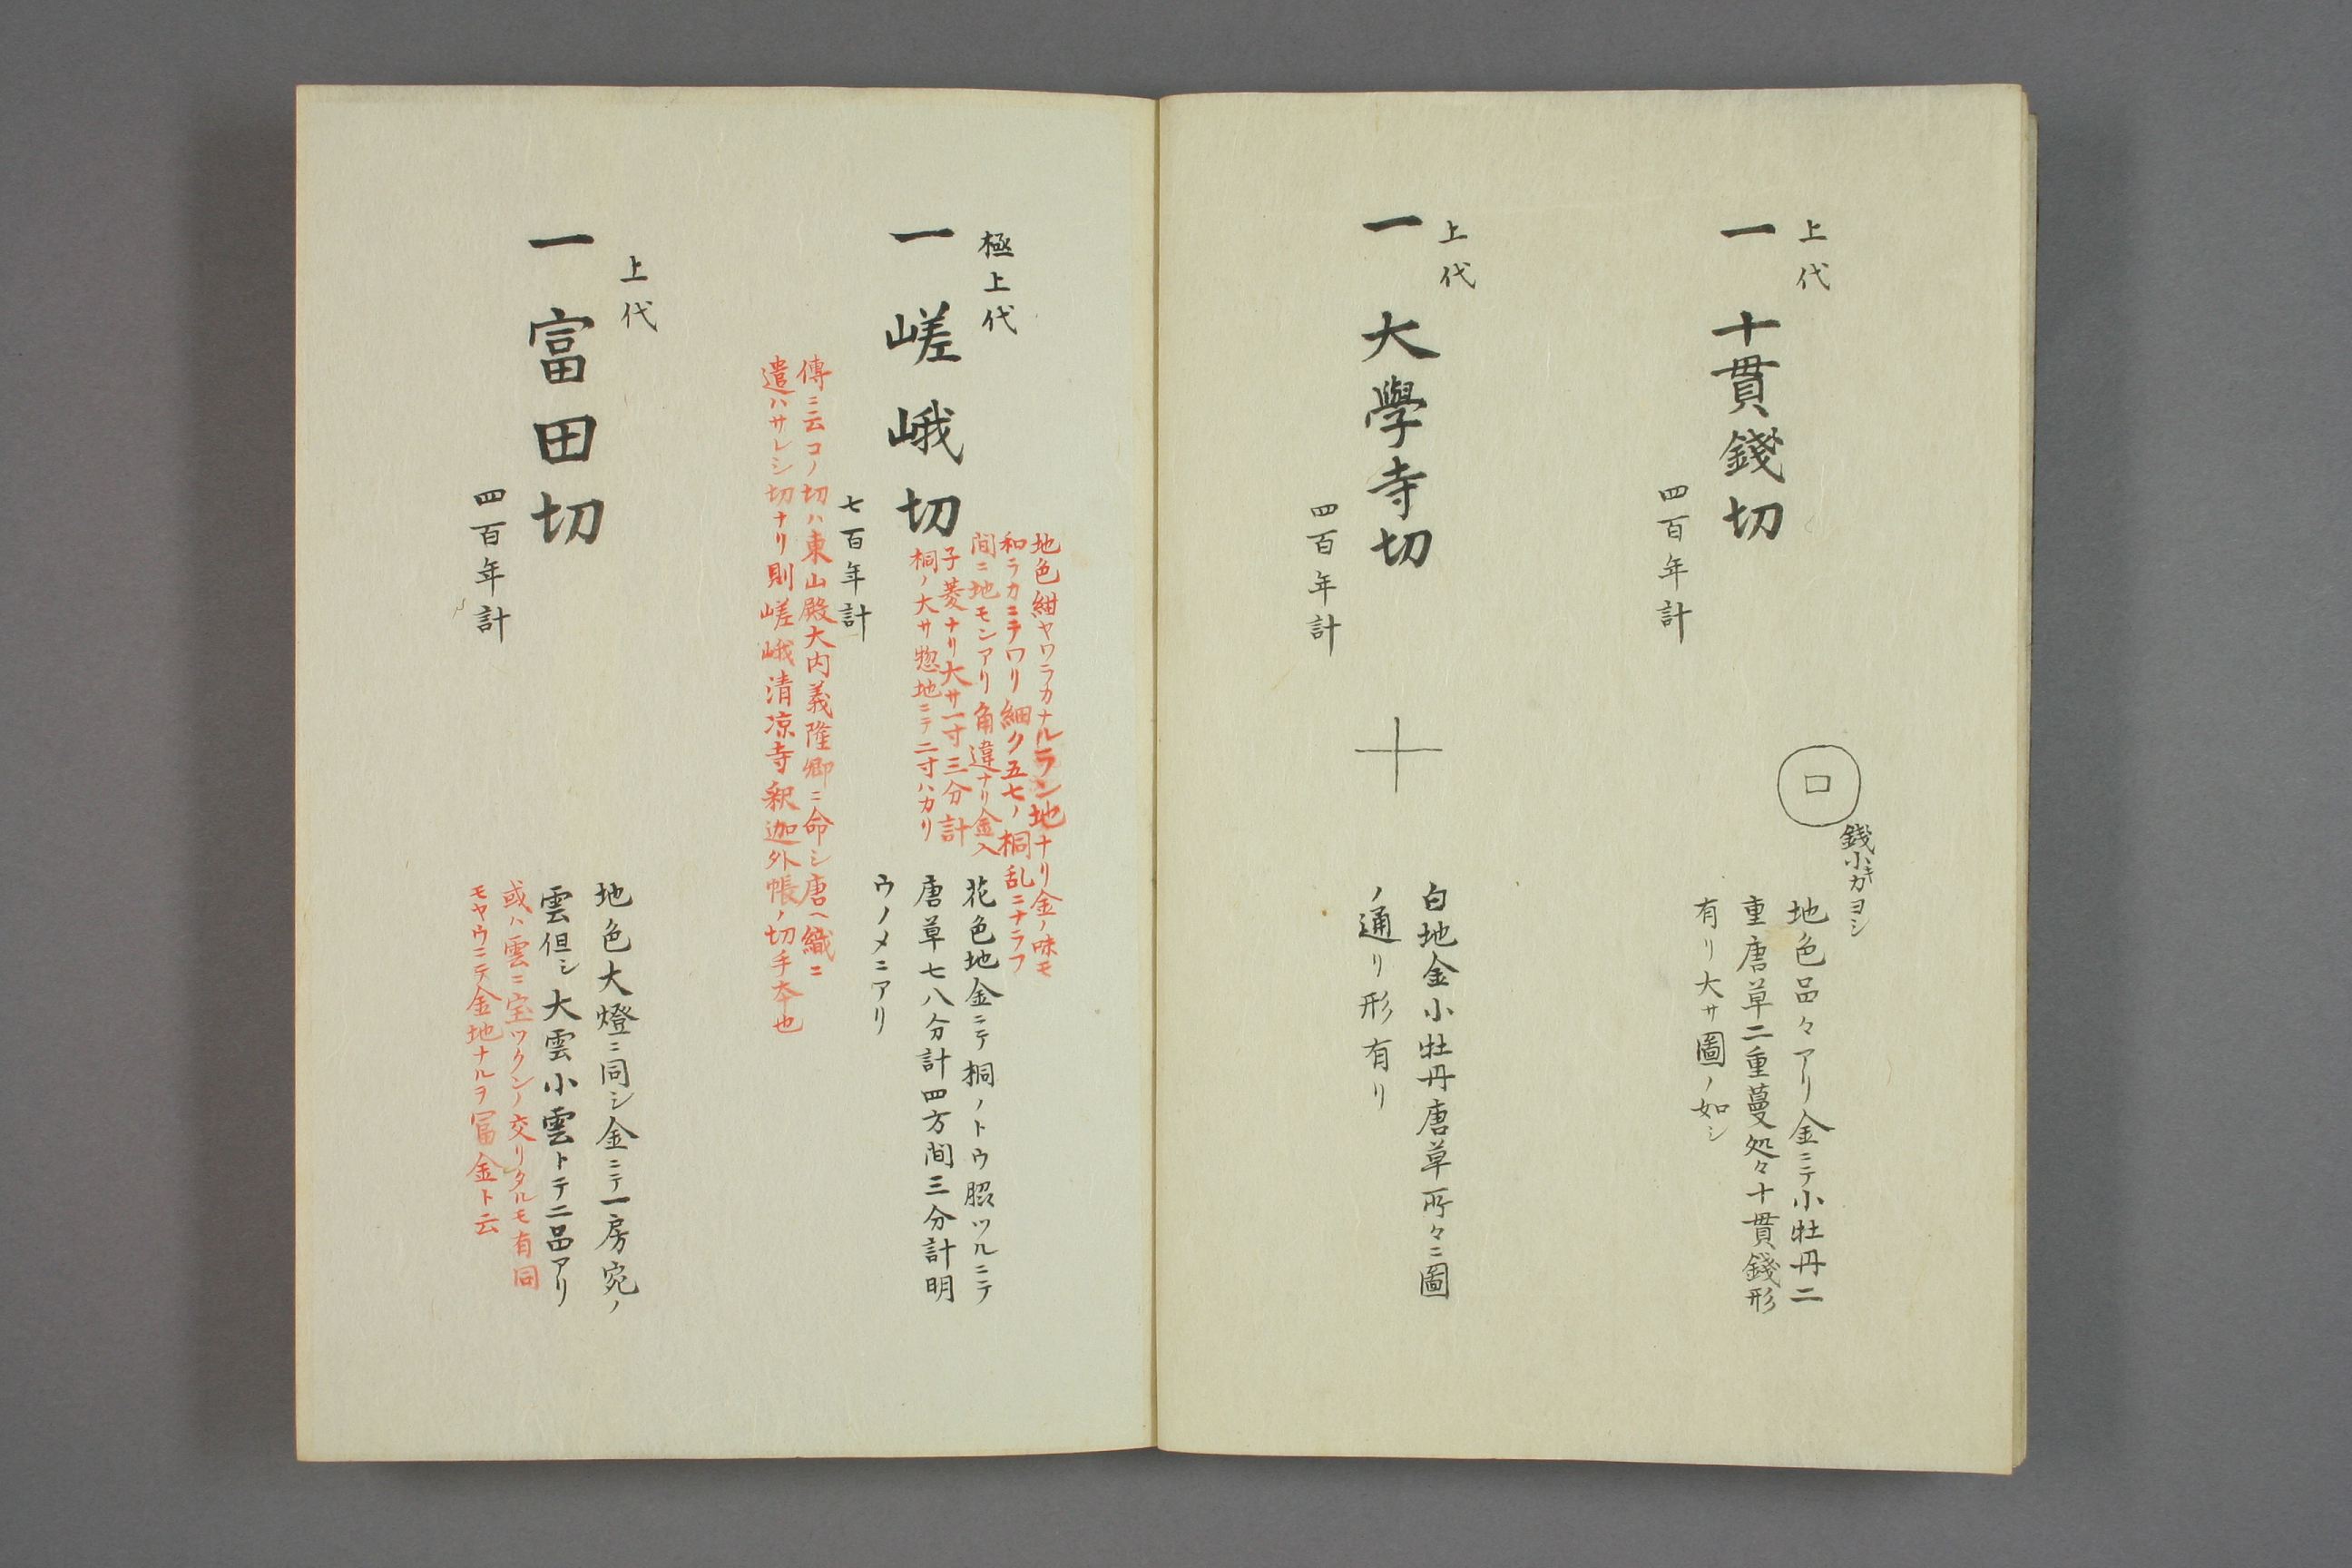 上代
一 十貫錢切
四百年計
錢小キカヨシ
地色品々アリ金ニテ小牡丹二
重唐草二重蔓処々十貫錢形
有リ大サ圖ノ如シ
上代
一 大學寺切
四百年計
白地金小牡丹唐草所々ニ圖
ノ通リ形有リ
極上代
一 嵯峨切
地色紺ヤワラカナルラン地ナリ金ノ味モ
和ラカニテワリ細ク五七ノ桐乱ニナラフ
間ニ地モンアリ角違ナリ金入
子菱ナリ大サ一寸三分計
桐ノ大サ惣地ニテ二寸ハカリ
七百年計
花色地金ニテ桐ノトウ䐇ツルニテ
唐草七八分計四方間三分計明
ウノメニアリ
傳ニ云コノ切ハ東山殿大内義隆卿ニ命シ唐ヘ織ニ
遣ハサレシ切ナリ則嵯峨清凉寺釈迦外帳ノ切手本也
上代
一 富田切
四百年計
地色大燈ニ同シ金ニテ一房宛ノ
雲但シ大雲小雲トテ二品アリ
或ハ雲ニ宝ツクシノ交リタルモ有同
モヤウニテ金地ナルヲ冨金ト云